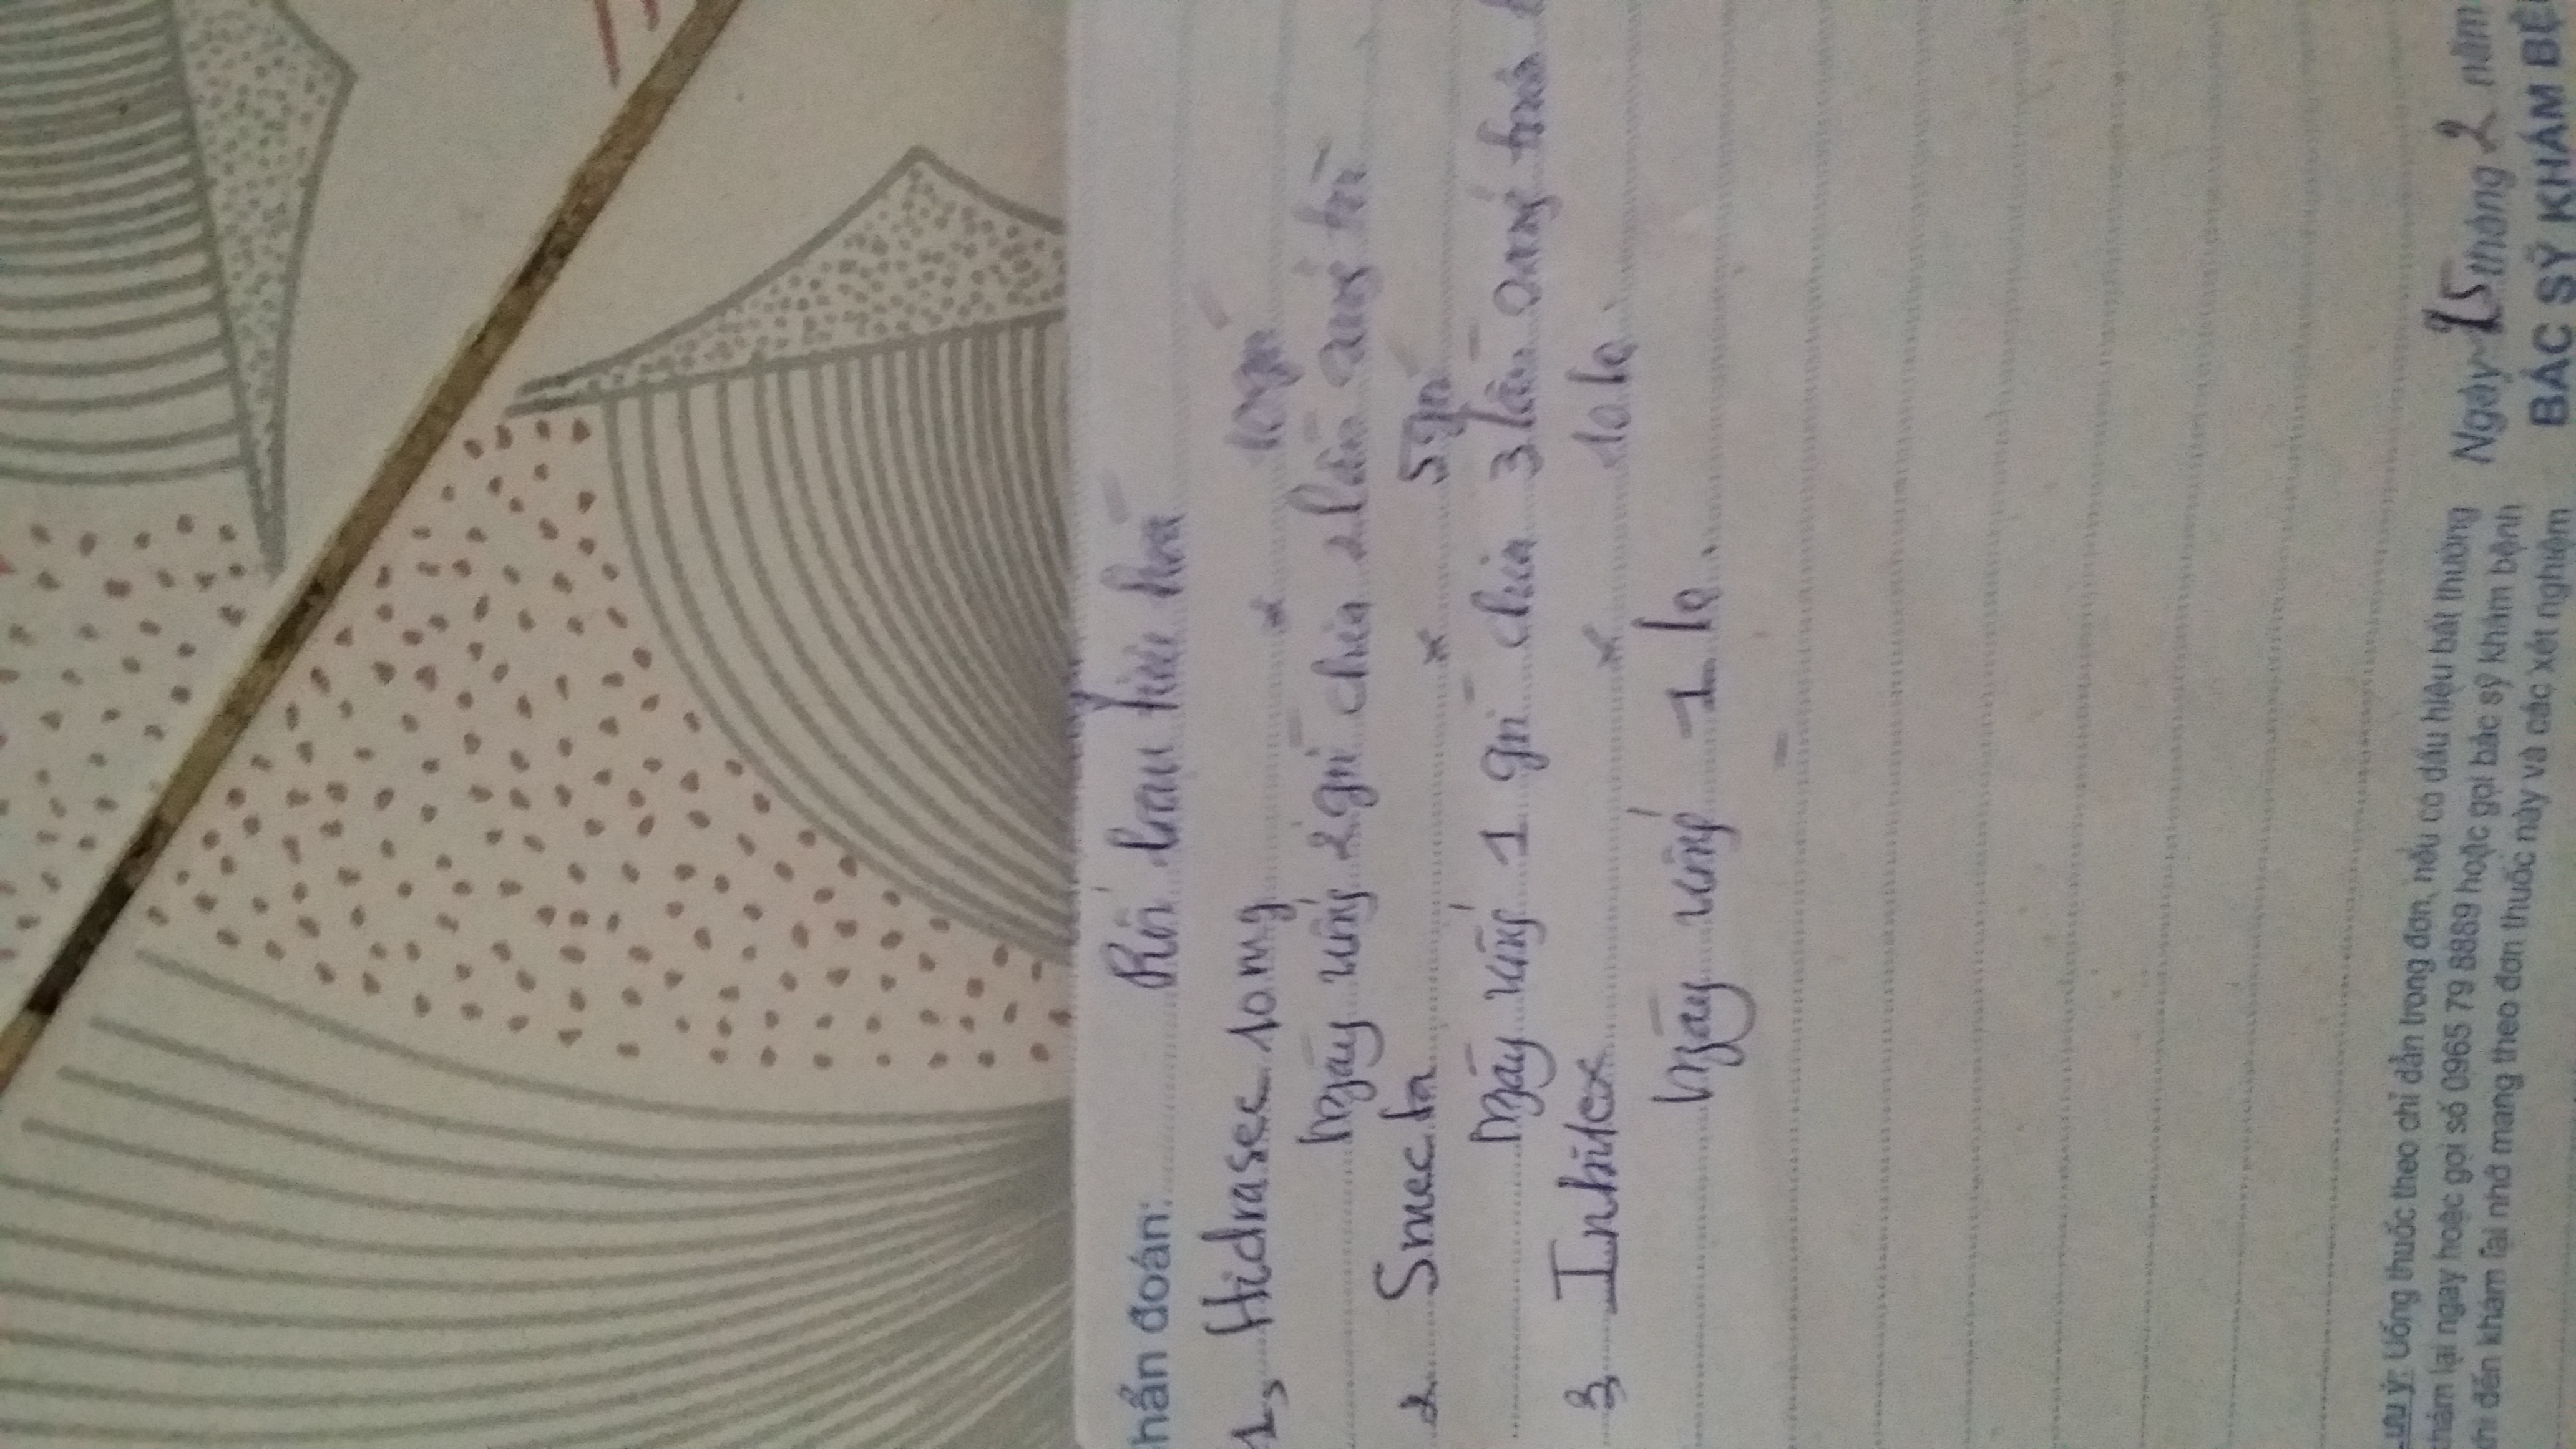 hẩn đoán: Rối loạn tiêu hoá
1, Hidrasec 10mg x 10 gói
Ngày uống 2 gói chia 2 lần sáng tối
2 Smecta x 5 gói
Ngày uống 1 gói chia 3 lần sáng trưa
3, x 10 lọ
Ngày uống 1 lọ.
Lưu ý: Uống thuốc theo chỉ dẫn trong đơn, nếu có dấu hiệu bất thường
khám lại ngay hoặc gọi số 0965 79 8889 hoặc gọi bác sỹ khám bệnh
hi đến khám lại nhớ mang theo đơn thuốc này và các xét nghiệm
Ngày 25 tháng 2 năm
BÁC SỸ KHÁM BỆ